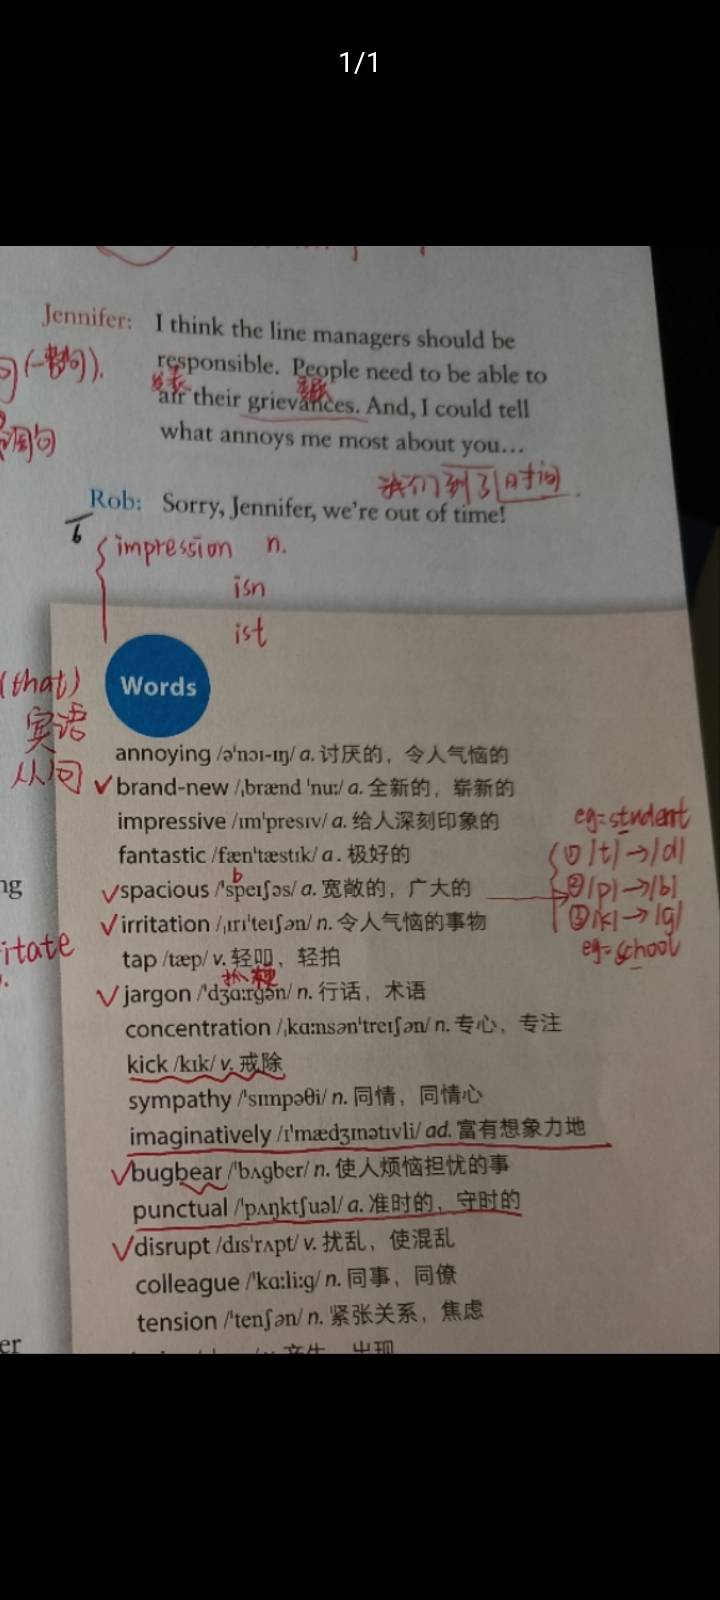 1/1
Jennifer: I think the line managers should be
responsible. People need to be able to
air their grievances. And, I could tell
what annoys me most about you...
我们到了时间.
Rob: Sorry, Jennifer, we're out of time!
6
impression n.
isn
ist
(that)
宾语
从句
Words
annoying /ə'nɔɪ-ɪŋ/ a. 讨厌的，令人气恼的
brand-new /ˌbrænd 'nuː/ a. 全新的，崭新的
impressive /ɪm'presɪv/ a. 给人深刻印象的
fantastic /fæn'tæstɪk/ a. 极好的
b
spacious /'speɪʃəs/ a. 宽敞的，广大的
irritation /ˌɪrɪ'teɪʃən/ n. 令人气恼的事物
tap /tæp/ v. 轻叩，轻拍
jargon /'dʒɑːrgən/ n. 行话，术语
concentration /ˌkɑːnsən'treɪʃən/ n. 专心，专注
kick /kɪk/ v. 戒除
sympathy /'sɪmpəθi/ n. 同情，同情心
imaginatively /ɪ'mædʒɪnətɪvli/ ad. 富有想象力地
bugbear /'bʌgber/ n. 使人烦恼担忧的事
punctual /'pʌŋktʃuəl/ a. 准时的，守时的
disrupt /dɪs'rʌpt/ v. 扰乱，使混乱
colleague /'kɑːliːg/ n. 同事，同僚
tension /'tenʃən/ n. 紧张关系，焦虑
eg: student
① |t|→|d|
② |p|→|b|
③ |k|→|g|
eg: school
ng
itate
er